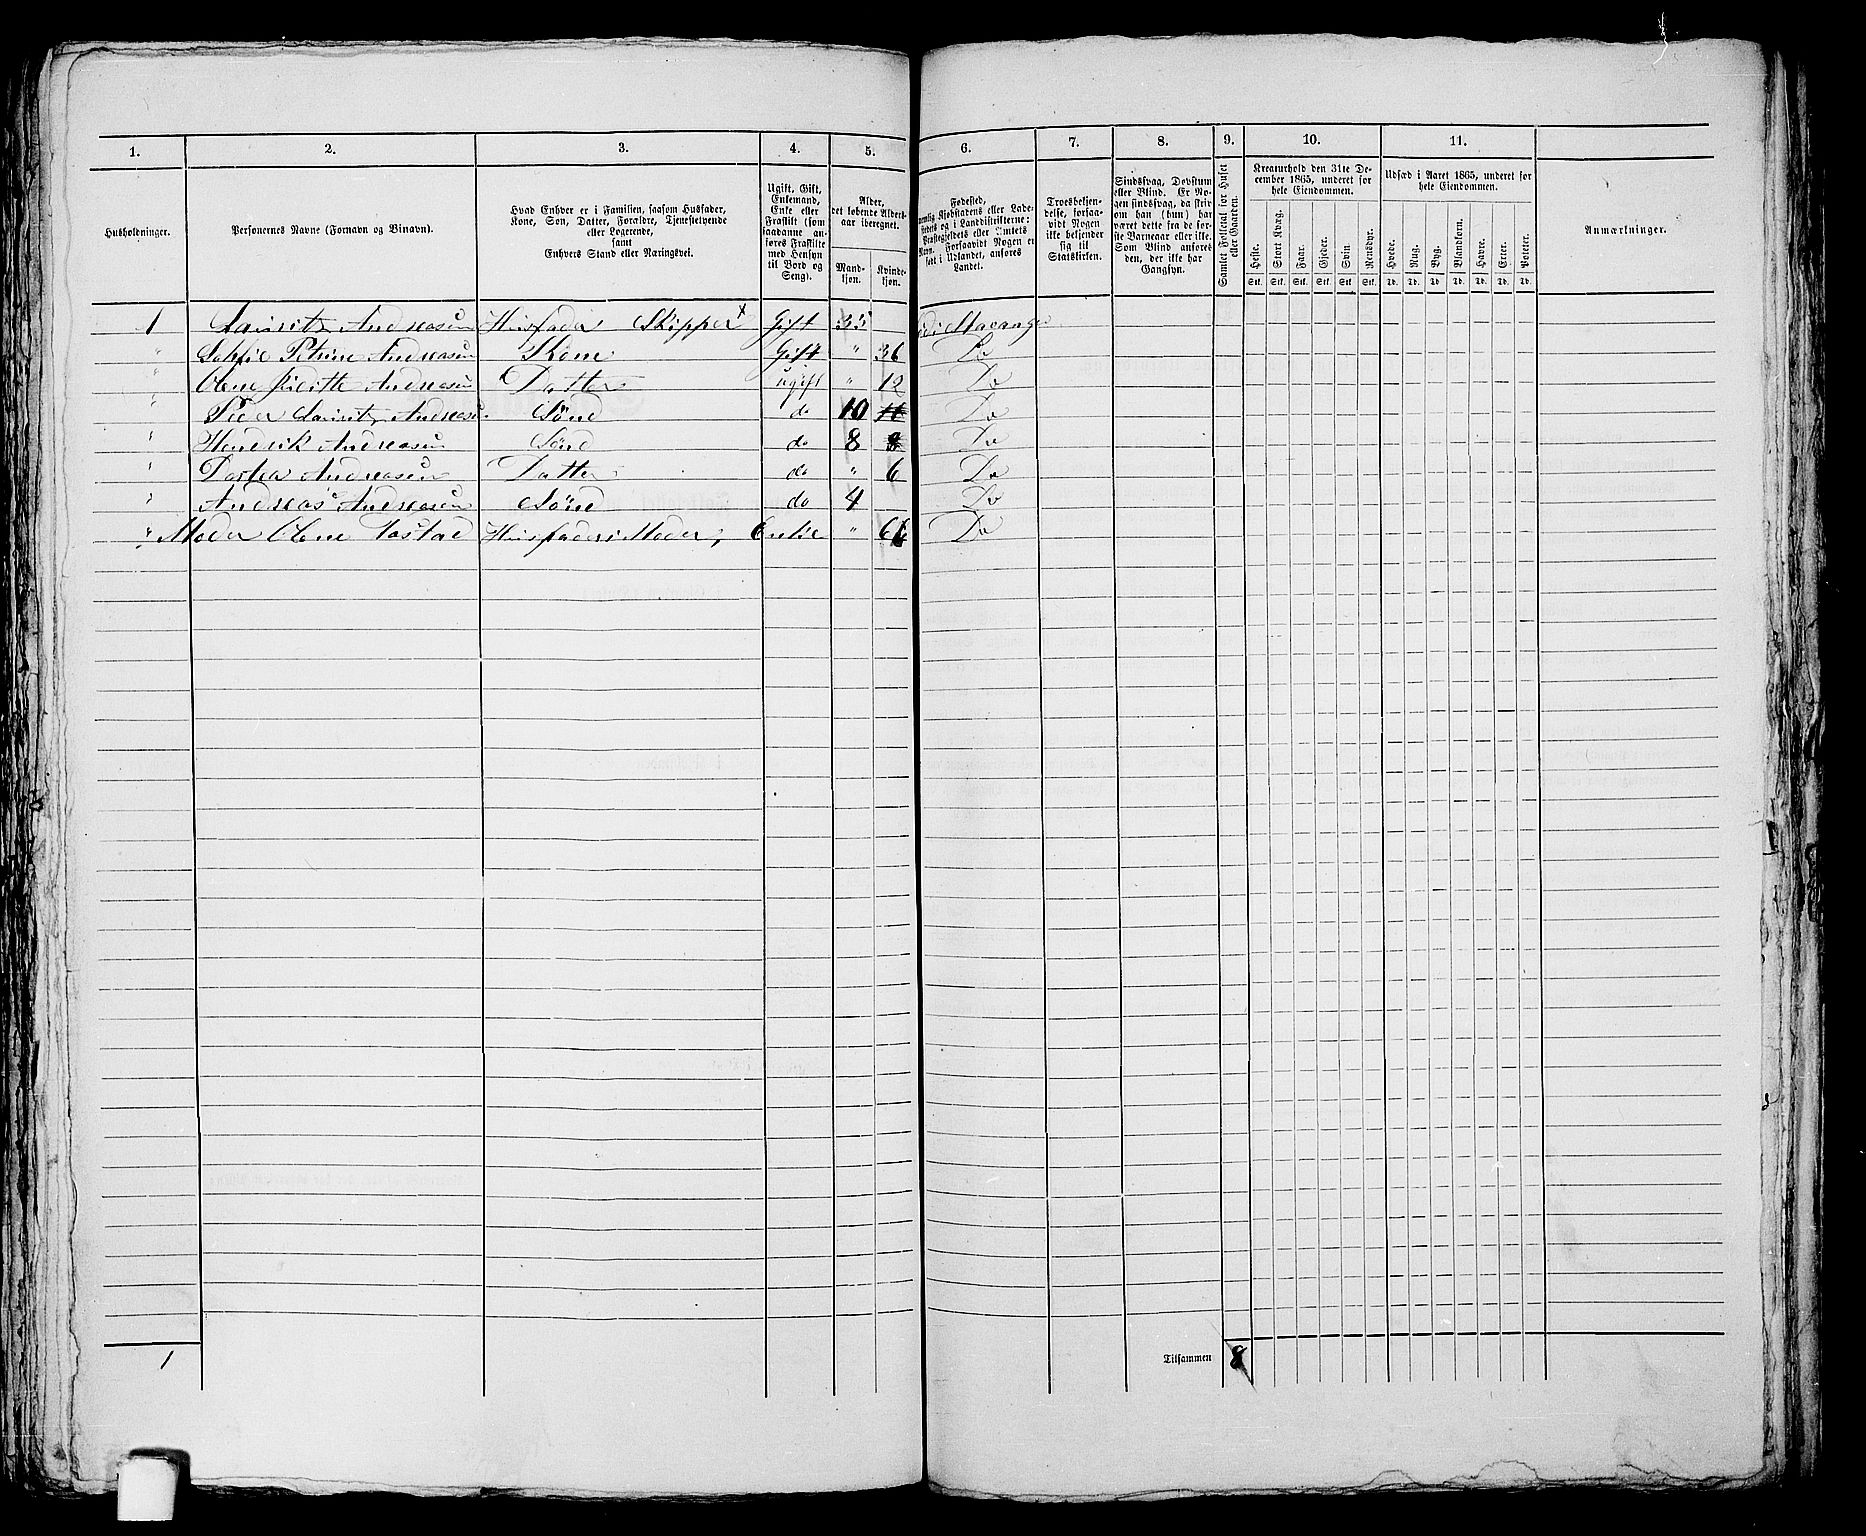 1. 2. 3. 4. 5. 6. 7. 8. 9. 10. 11.
Husholdninger.
Personernes Navne (Fornavn og Binavn).
Hvad Enhver er i Familien, saasom Husfader,
Kone, Søn, Datter, Forældre, Tjenestetyende
eller Logerende,
samt
Enhvers Stand eller Næringsvei.
Ugift, Gift,
Enkemand,
Enke eller
Fraskilt (som
saadanne an-
føres Fraskilte
med Hensyn
til Bord og
Seng).
Alder,
det løbende Alders-
aar iberegnet.
Mand-
kjøn.
Kvinde-
kjøn.
Fødested,
nemlig Kjøbstadens eller Lade-
stedets og i Landdistrikterne:
Præstegjeldets eller Amtets
Navn. Forsaavidt Nogen er
født i Udlandet, anføres
Landet.
Troesbekjen-
delse, forsaa-
vidt Nogen
ikke bekjender
sig til
Statskirken.
Sindssvag, Døvstum
eller Blind. Er No-
gen sindssvag, da skriv
om han (hun) har
været dette fra de før-
ste Barneaar eller ikke.
Som Blind anføres
den, der ikke har
Gangsyn.
Samlet Folketal for Huset
eller Gaarden.
Kreaturhold den 31te De-
cember 1865, underet for
hele Eiendommen.
Heste. Stort Kvæg. Faar. Gjeder. Svin Rensdyr.
Stk. Stk. Stk. Stk. Stk Stk.
Udsæd i Aaret 1865, underet for
hele Eiendommen.
Hvede. Rug. Byg. Blandkorn. Havre. Erter. Poteter.
Td. Td. Td Td. Td. Td. Td.
Anmærkninger.
1 Lauritz Andreasen Husfader Skipper Gift 35
" Sophie Petrine Andreasen Kone Gift " 36 Do
" Olene Andreasen Datter ugift " 12 Do
" Peder Lauritz Andreasen Sønd do 10 11 Do
" Hendrik Andreasen Sønd do 8 8 Do
" Dorfea Andreasen Datter do " 6 Do
" Andreas Andreasen Sønd do 4 Do
" Moder Olene Husfaders Moder; Enke " Do
1 Tilsammen 8